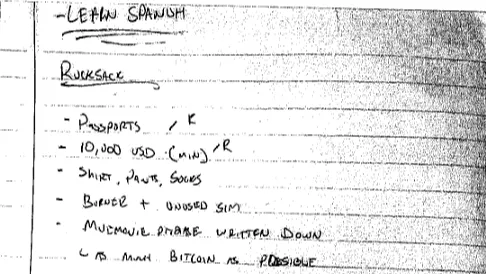 - LEARN SPANISH
RUCKSACK
- PASSPORTS / R
- 10,000 USD (MIN) / R
- SHIRT, PANTS, SOCKS
- BURNER + UNUSED SIM
- MNEMONIC PHRASE WRITTEN DOWN
↳ AS MUCH BITCOIN AS POSSIBLE